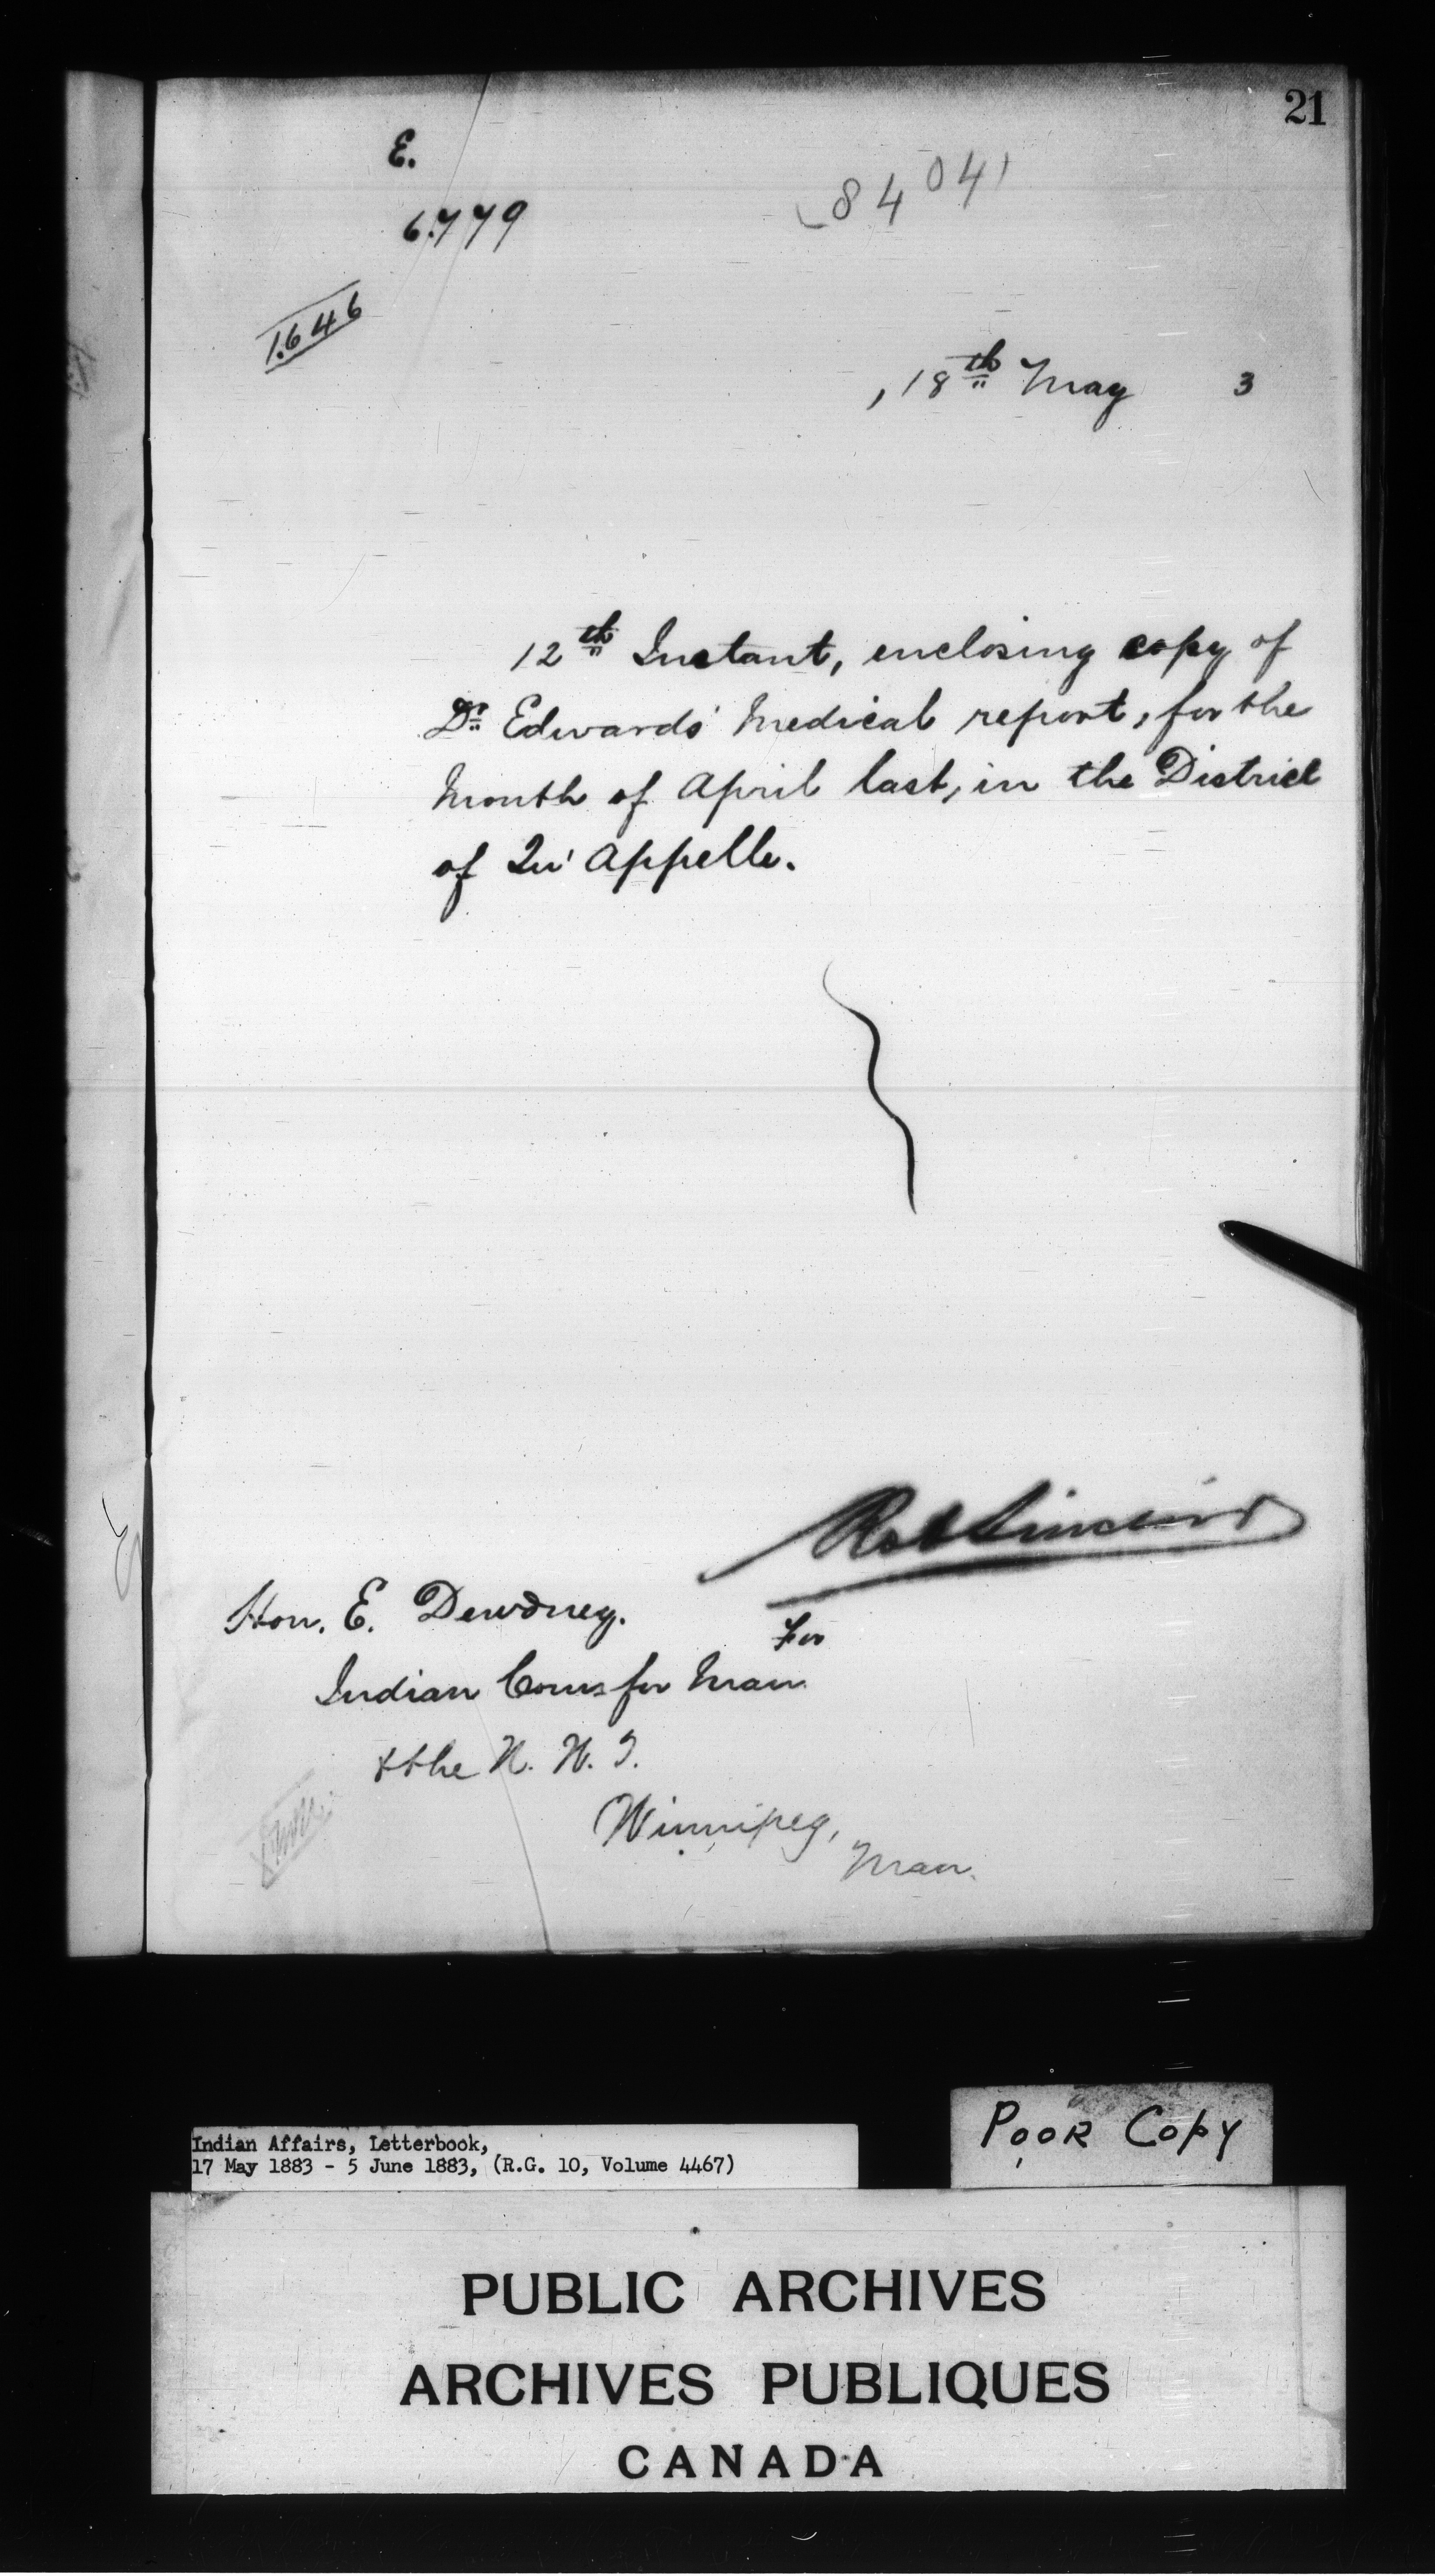 21
E.
84041
6.779
1.646
, 18th May 3
12th Instant, enclosing copy of
Dr Edwards' Medical report, for the
Month of April last, in the District
of Qu' Appelle.
Robt Sinclair
Hon. E. Dewdney.
For
Indian Comr for Man.
& the N. W. T.
Winnipeg,
Man.
Indian Affairs, Letterbook,
17 May 1883 - 5 June 1883, (R.G. 10, Volume 4467)
POOR COPY
PUBLIC ARCHIVES
ARCHIVES PUBLIQUES
CANADA